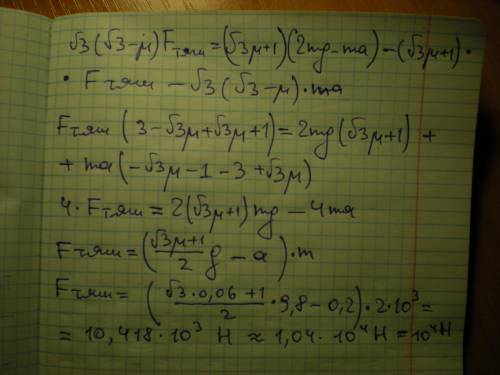 √3(√3-μ)Fтяж=(√3μ+1)(2mg-ma)-(√3μ+1)·
· Fтяж-√3(√3-μ)·ma
Fтяж(3-√3μ+√3μ+1)=2mg(√3μ+1)+
+ma(-√3μ-1-3+√3μ)
4·Fтяж=2(√3μ+1)mg-4ma
Fтяж=((√3μ+1)/2 g-a)·m
Fтяж=((√3·0,06+1)/2·9,8-0,2)·2·10³=
=10,418·10³ Н ≈ 1,04·10⁴Н=10⁴Н